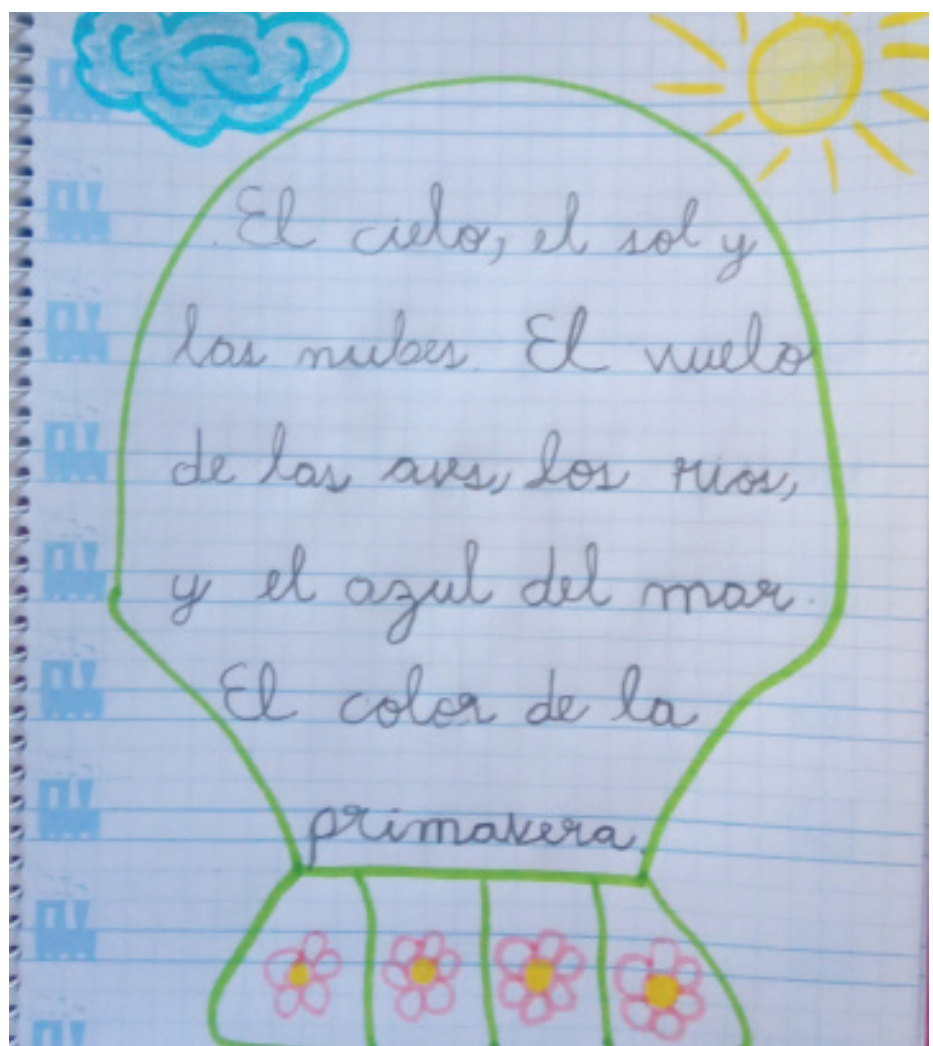 El cielo, el sol y
las nubes. El vuelo
de las aves, los rios,
y el azul del mar.
El color de la
primavera.